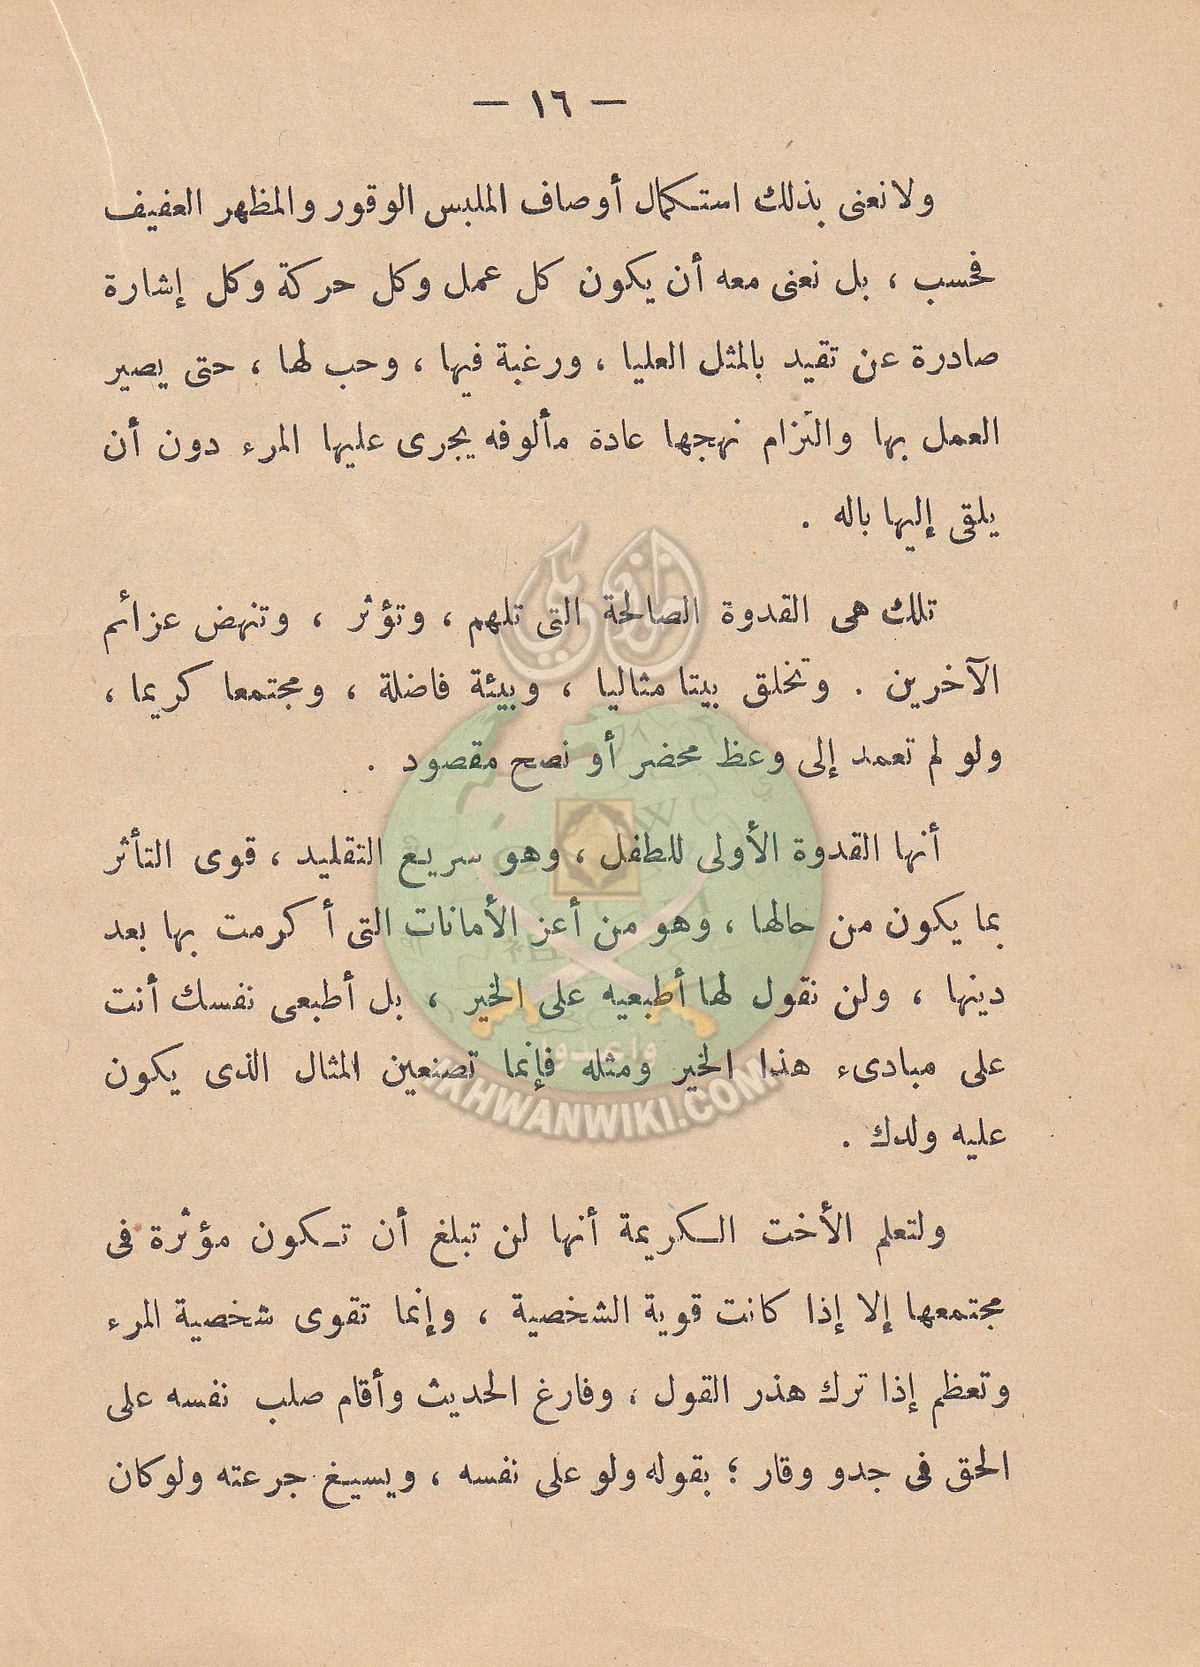 — ١٦ —
ولا نعنى بذلك استكمال أوصاف الملبس الوقور والمظهر العفيف
فحسب ، بل نعنى معه أن يكون كل عمل وكل حركة وكل إشارة
صادرة عن تقيد بالمثل العليا ، ورغبة فيها ، وحب لها ، حتى يصير
العمل بها والتزام نهجها عادة مألوفه يجرى عليها المرء دون أن
يلقى إليها باله .
تلك هى القدوة الصالحة التى تلهم ، وتؤثر ، وتنهض عزائم
الآخرين . وتخلق بيتا مثاليا ، وبيئة فاضلة ، ومجتمعا كريما ،
ولو لم تعمد إلى وعظ محضر أو نصح مقصود .
أنها القدوة الأولى للطفل ، وهو سريع التقليد ، قوى التأثر
بما يكون من حالها ، وهو من أعز الأمانات التى أكرمت بها بعد
دينها ، ولن نقول لها أطبعيه على الخير ، بل أطبعى نفسك أنت
على مبادىء هذا الخير ومثله فإنما تصنعين المثال الذى يكون
عليه ولدك .
ولتعلم الأخت الكريمة أنها لن تبلغ أن تكون مؤثرة فى
مجتمعها إلا إذا كانت قوية الشخصية ، وإنما تقوى شخصية المرء
وتعظم إذا ترك هذر القول ، وفارغ الحديث وأقام صلب نفسه على
الحق فى جدو وقار ؛ بقوله ولو على نفسه ، ويسيغ جرعته ولوكان
واعدوا
IKHWANWIKI.COM